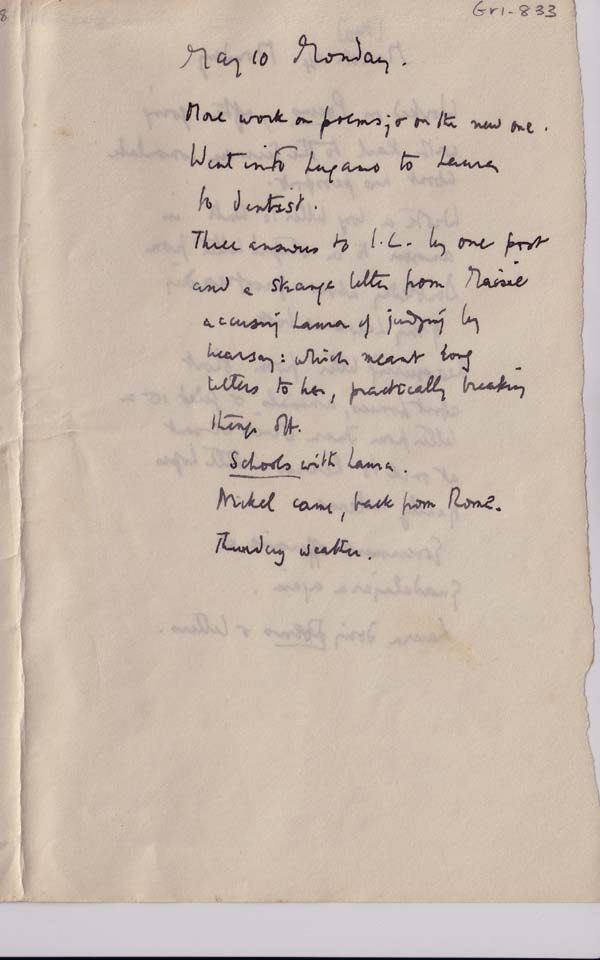 Gr1-833
May 10 Monday.
More work on poems; & on the new one.
Went into Lugano to Laura
to dentist.
Three answers to I.L. by one post
and a strange letter from Maisie
accusing Laura of judging by
hearsay: which meant long
letters to her, practically breaking
things off.
Schools with Laura.
Nikel came, back from Rome.
Thundery weather.